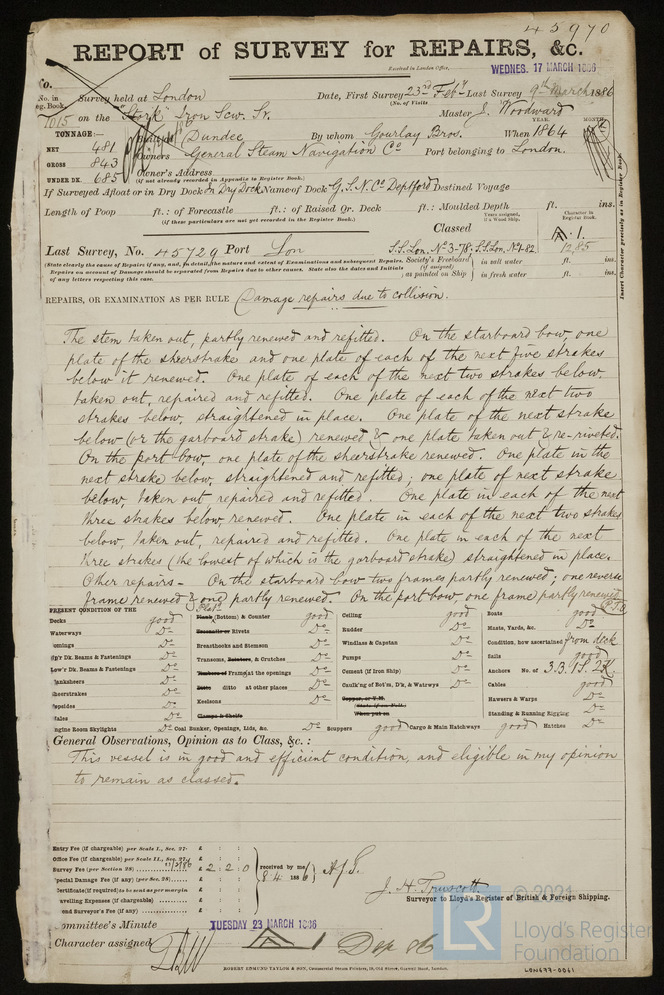 45970
REPORT of SURVEY for REPAIRS, &c.
Received in London Office,
WEDNES. 17 MARCH 1886
No. in Reg. Book.
Survey held at London
Date, First Survey 23rd Feby Last Survey 9th March 1886
(No. of Visits
1015 on the "Stork" Iron Scw. Sr.
Master J. Woodward
TONNAGE:—
Dundee
By whom Gourlay Bros.
YEAR. MONTH.
When 1864
NET 481
Owners General Steam Navigation Co
Port belonging to London.
GROSS 843
Owner's Address
(if not already recorded in Appendix to Register Book.)
UNDER DK. 685
If Surveyed Afloat or in Dry Dock In Dry Dock Name of Dock G.S.N.Co Deptford Destined Voyage
Length of Poop ft.: of Forecastle ft.: of Raised Qr. Deck ft.: Moulded Depth ft. ins.
(if these particulars are not yet recorded in the Register Book.)
Years assigned, if a Wood Ship.
Character in Register Book.
Insert Character precisely as in Register Book.
Classed
A.1.
12,85
Last Survey, No. 45729 Port Lon
S.S. Lon. No 3-78; S.S. Lon. No 1-82
(State clearly the cause of Repairs if any, and, in detail, the nature and extent of Examinations and subsequent Repairs.
Repairs on account of Damage should be separated from Repairs due to other causes. State also the dates and Initials
of any letters respecting this case.
Society's Freeboard (if assigned) as painted on Ship
in salt water ft. ins.
in fresh water ft. ins.
REPAIRS, OR EXAMINATION AS PER RULE Damage repairs due to collision.
The stem taken out, partly renewed and refitted. On the starboard bow, one
plate of the sheerstrake and one plate of each of the next five strakes
below it renewed. One plate of each of the next two strakes below,
taken out, repaired and refitted. One plate of each of the next two
strakes below, straightened in place. One plate of the next strake
below (or the garboard strake) renewed & one plate taken out & re-riveted.
On the port bow, one plate of the sheerstrake renewed. One plate in the
next strake below, straightened and refitted; one plate of next strake
below, taken out repaired and refitted. One plate in each of the next
three strakes below, renewed. One plate in each of the next two strakes
below, taken out, repaired and refitted. One plate in each of the next
three strakes (the lowest of which is the garboard strake) straightened in place.
Other repairs - On the starboard bow two frames partly renewed; one reverse
frame renewed & one partly renewed. On the port bow, one frame partly renewed
P.T.O
PRESENT CONDITION OF THE
Decks good
Waterways Do
Comings Do
Up'r Dk. Beams & Fastenings Do
Low'r Dk. Beams & Fastenings Do
Planksheers Do
Sheerstrakes Do
Topsides Do
Wales Do
Engine Room Skylights Do
Plate
Plank (Bottom) & Counter good
Treenails or Rivets Do
Breasthooks and Stemson Do
Transoms, Pointers, & Crutches Do
Timbers of Frame at the openings Do
Ditto ditto at other places Do
Keelsons Do
Clamps & Shelfs
Coal Bunker, Openings, Lids, &c. Do
Ceiling good
Rudder Do
Windlass & Capstan Do
Pumps Do
Cement (if Iron Ship) Do
Caulk'ng of Bot'm, D'k, & Watrwys Do
Copper, or Y.M.
(State if on Felt.
When put on
Scuppers good Cargo & Main Hatchways good Hatches Do
Boats good
Masts, Yards, &c. Do
Condition, how ascertained from deck
Sails good
Anchors No. of 3B. 1S. 2K
Cables good
Hawsers & Warps Do
Standing & Running Rigging Do
General Observations, Opinion as to Class, &c.:
This vessel is in good and efficient condition, and eligible in my opinion
to remain as classed.
Entry Fee (if chargeable) per Scale I., Sec. 27. £ : :
Office Fee (if chargeable) per Scale II., Sec. 27. £ : :
Survey Fee (per Section 28) £ 2 : 2 : 0
Special Damage Fee (if any) (per Sec. 28) £ : :
Certificate (if required) to be sent as per margin
Travelling Expenses (if chargeable) £ : :
Second Surveyor's Fee (if any) £ : :
received by me,
8.4 1886
J. H. Truscott
Surveyor to Lloyd's Register of British & Foreign Shipping.
Committee's Minute TUESDAY 23 MARCH 1886
Character assigned A 1
ROBERT EDMUND TAYLOR & SON, Commercial Steam Printers, 19, Old Street, Goswell Road, London.
LR
© 2021
Lloyd's Register
Foundation
LON677-0061